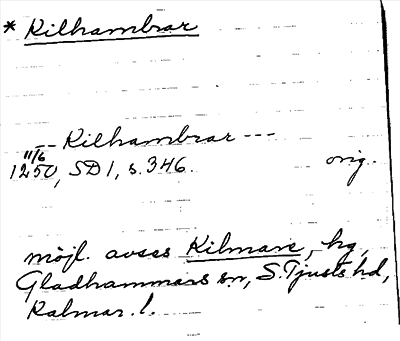 * Kilhambrar
-- Kilhambrar ---
11/6
1250, SD 1, s. 346. orig.
möjl. avses Kilmare, hg,
Gladhammars sn, S. Tjusts hd,
Kalmar. l.